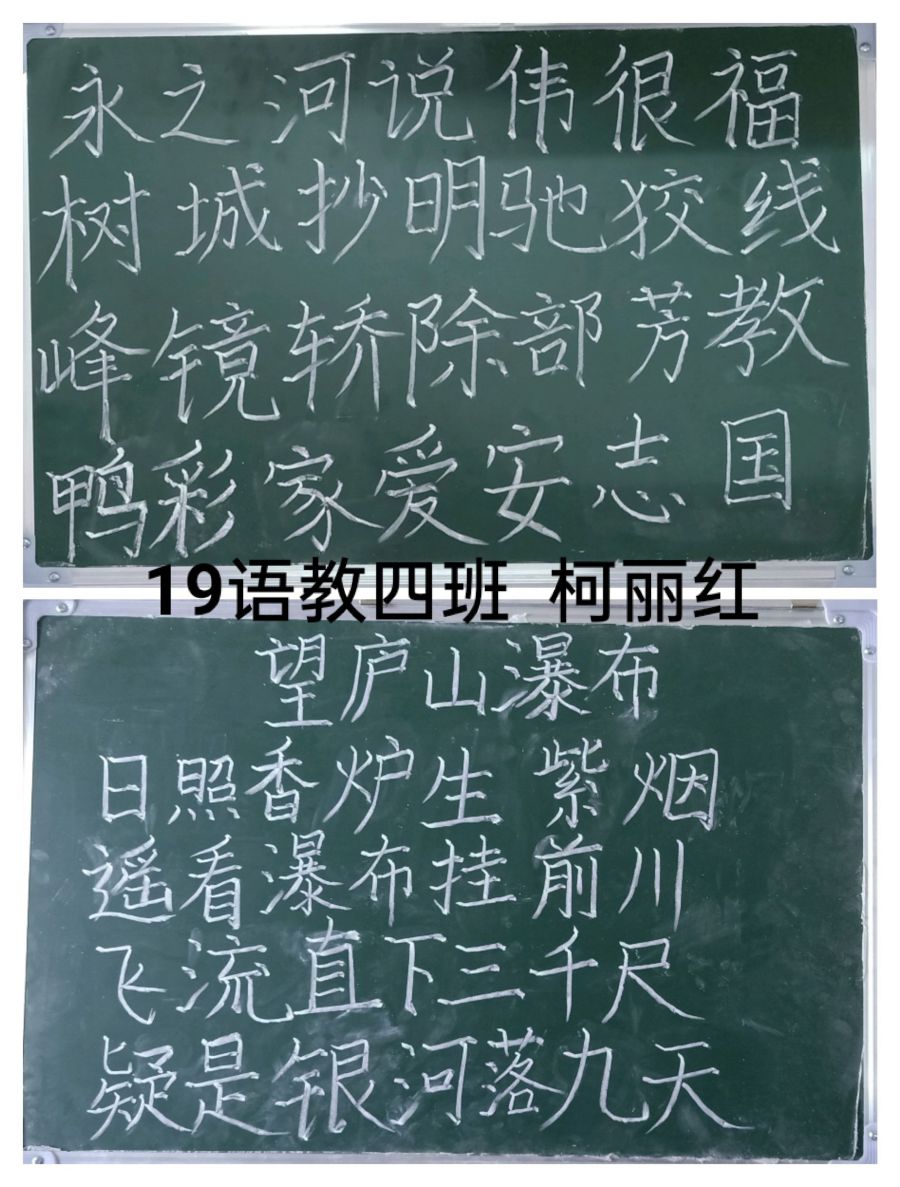 永之河说伟很福
树城抄明驰狡线
峰镜轿除部芳教
鸭彩家爱安志国
19语教四班 柯丽红
望庐山瀑布
日照香炉生紫烟
遥看瀑布挂前川
飞流直下三千尺
疑是银河落九天